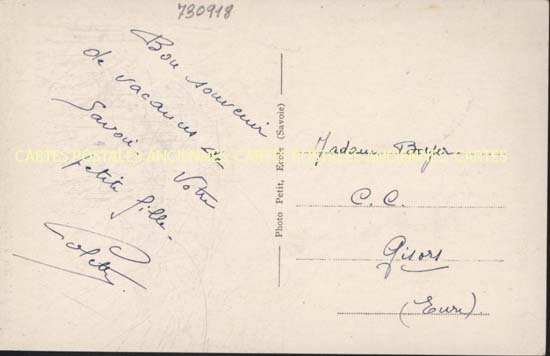 730918
Bon souvenir
de vacances en
Savoie Votre
petite fille.
Colette.
CARTES POSTALES ANCIENNES CARTES POSTALES ANCIENNES
Photo Petit, Ecole (Savoie)
Madame
C. C.
Gisors
(Eure)